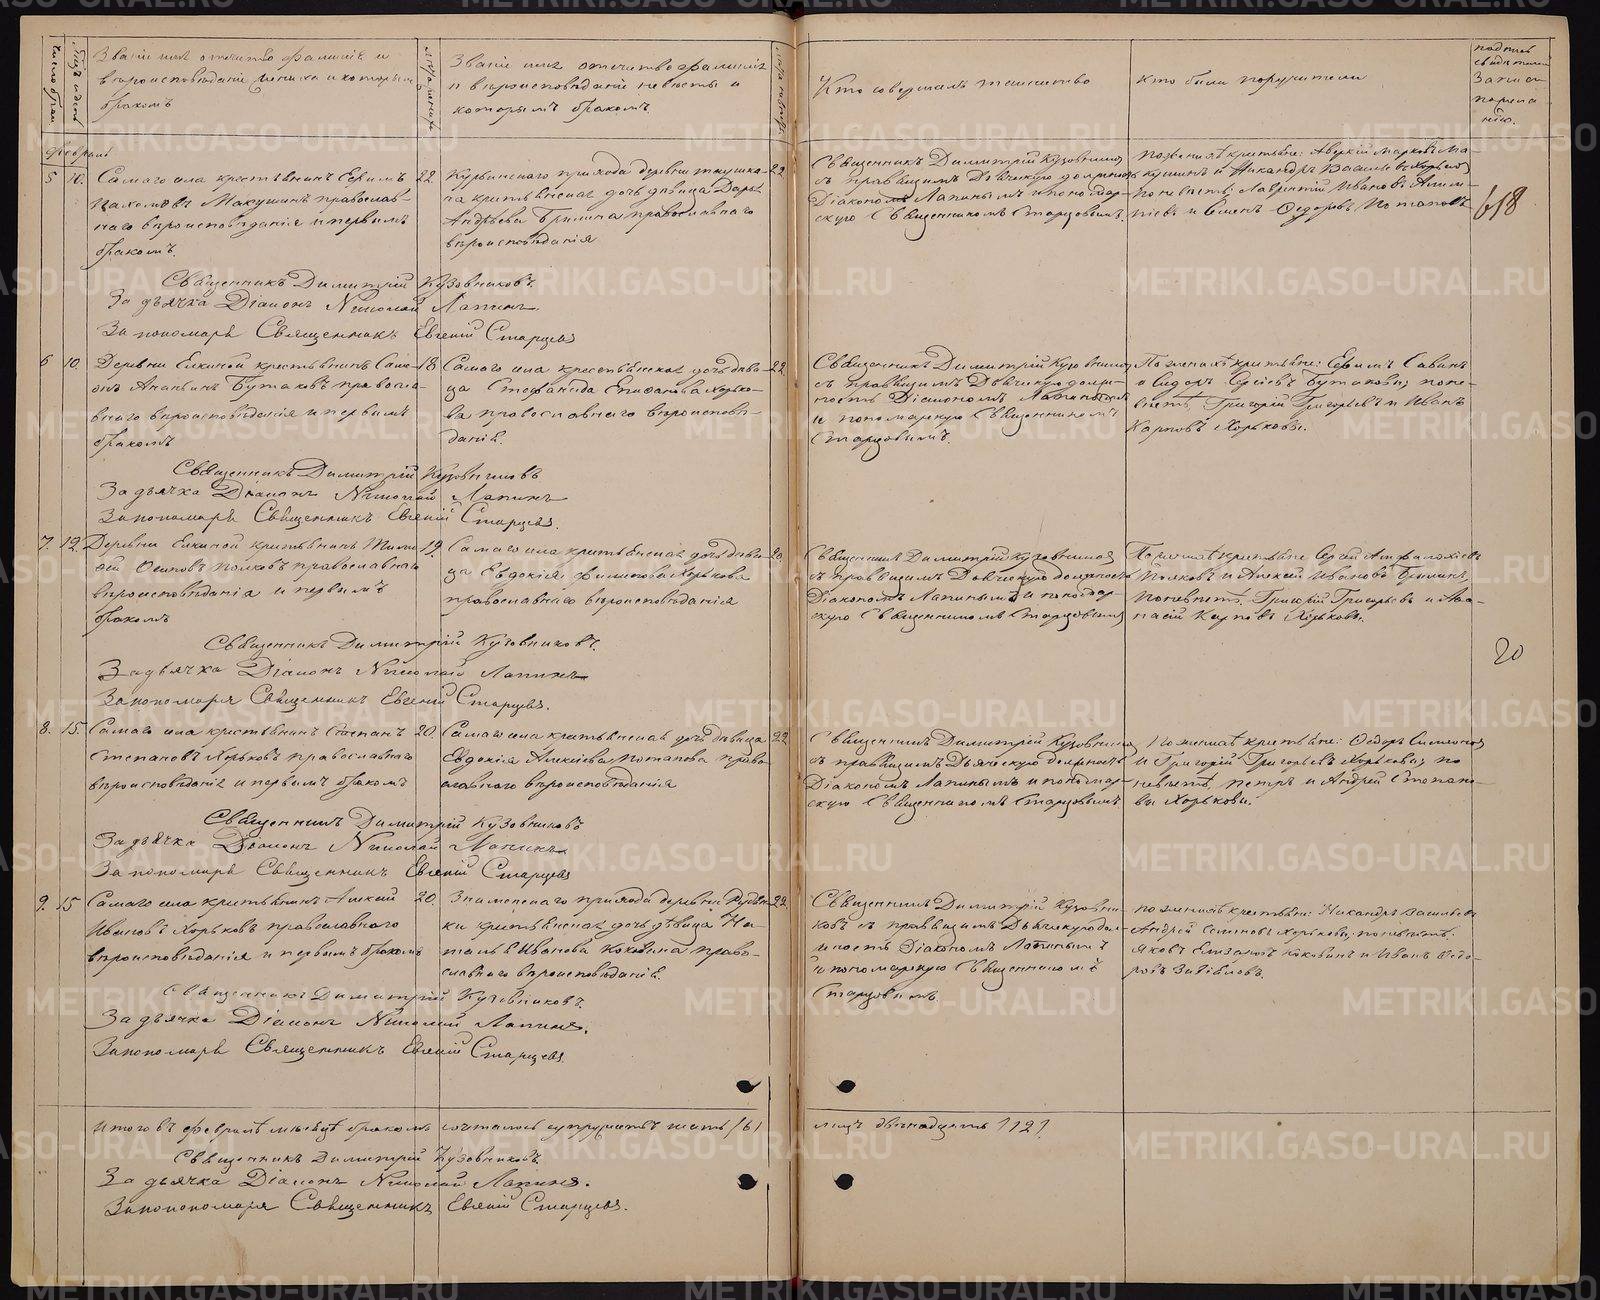 Званіе имя отчество фамилія и
вѣроисповѣданіе жениха и которымъ
бракомъ
Званіе имя отчество фамилія
и вѣроисповѣданіе невѣсты и
которымъ бракомъ.
Кто совершалъ таинство
Кто были поручители
Февраль
5 10. Самаго села крестьянинъ Ефимъ 22
Пахомовъ Макушинъ православ-
наго вѣроисповѣданія и первымъ
бракомъ.
прихода деревни
крестьянская дочь дѣвица Дарья
Андреева православнаго
вѣроисповѣданія
22
Священникъ Димитрій Кузовников
Діаконъ Лапинымъ и пономар-
скую Священникомъ Старцовымъ.
По женихѣ крестьяне: Аверкій Марковъ Ма-
кушинъ и Никандръ Васильевъ Хорьковъ
по невѣстѣ Лаврентій Ивановъ
и Семенъ Федоровъ Потаповъ
618
Священникъ Димитрій Кузовниковъ.
За дьячка Діаконъ Николай Лапинъ.
За пономаря Священникъ Евгеній Старцевъ
6 10. Деревни Елкиной крестьянинъ 18
Ананьинъ Бутаковъ правосла-
внаго вѣроисповѣданія и первымъ
бракомъ
Самаго села крестьянская дочь дѣви-
ца Стефанида Епифанова Хорько-
ва православнаго вѣроисповѣ-
данія.
22
Священникъ Димитрій Кузовников
съ правящимъ Дьяческую долж-
ность Діакономъ Лапинымъ
и пономарскую Священникомъ
Старцовымъ.
По женихѣ крестьяне: Ефимъ Савинъ
и Сидоръ Сергѣевъ Бутаковы; по не-
вѣстѣ Григорій Григорьевъ и Иванъ
Карповъ Хорьковы.
Священникъ Димитрій Кузовниковъ
За дьячка Діаконъ Николай Лапинъ
За пономаря Священникъ Евгеній Старцевъ.
7. 12. Деревни Елкиной крестьянинъ Тимо- 19.
фей Осиповъ Поляковъ православнаго
вѣроисповѣданія и первымъ
бракомъ
Самаго села крестьянская дочь дѣви-
ца Евдокія Филиппова Хорькова
православнаго вѣроисповѣданія
20.
Священникъ Димитрій Кузовников
съ правящимъ Дьяческую должность
Діакономъ Лапинымъ и пономар-
скую Священникомъ Старцовымъ
По женихѣ крестьяне Сергѣй Амфилохіевъ
Поляковъ и Алексѣй Ивановъ
По невѣстѣ Григорій Григорьевъ и Афа-
насій Карповъ Хорьковы.
20
Священникъ Димитрій Кузовниковъ.
За дьячка Діаконъ Николай Лапинъ
За пономаря Священникъ Евгеній Старцевъ.
8. 15. Самаго села крестьянинъ Степанъ 20.
Степановъ Хорьковъ православнаго
вѣроисповѣданія и первымъ бракомъ
Самаго села крестьянская дочь дѣвица
Евдокія Алексѣева Потапова право-
славнаго вѣроисповѣданія
22
Священникъ Димитрій Кузовников
съ правящимъ Дьяческую должность
Діакономъ Лапинымъ и пономар-
скую Священникомъ Старцовымъ
По женихѣ крестьяне: Федоръ Симеонов
и Григорій Григорьевъ Хорьковы; по
невѣстѣ Петръ и Андрей Степано-
вы Хорьковы.
Священникъ Димитрій Кузовниковъ
За дьячка Діаконъ Николай Лапинъ
За пономаря Священникъ Евгеній Старцевъ
9. 15 Самаго села крестьянинъ Алексѣй 20.
Ивановъ Хорьковъ православнаго
вѣроисповѣданія и первымъ бракомъ
Знаменскаго прихода деревни Рудян-
ки крестьянская дочь дѣвица На-
талья Иванова Коковина право-
славнаго вѣроисповѣданія.
22.
Священникъ Димитрій Кузовни-
ковъ съ правящимъ Дьяческую дол-
жность Діакономъ Лапинымъ
и пономарскую Священникомъ
Старцовымъ
По женихѣ крестьяне: Никандръ Васильевъ
Андрей Семеновъ Хорьковы; по невѣстѣ.
Яковъ Елизаровъ Коковинъ и Иванъ Федо-
ровъ
Священникъ Димитрій Кузовниковъ.
За дьячка Діаконъ Николай Лапинъ.
За пономаря Священникъ Евгеній Старцевъ.
Итого въ Февралѣ мѣсяцѣ бракомъ сочталось супружествъ шесть /6/
лицъ двѣнадцать /12/.
Священникъ Димитрій Кузовниковъ.
За дьячка Діаконъ Николай Лапинъ.
За пономаря Священникъ Евгеній Старцевъ.
METRIKI.GASO-URAL.RU